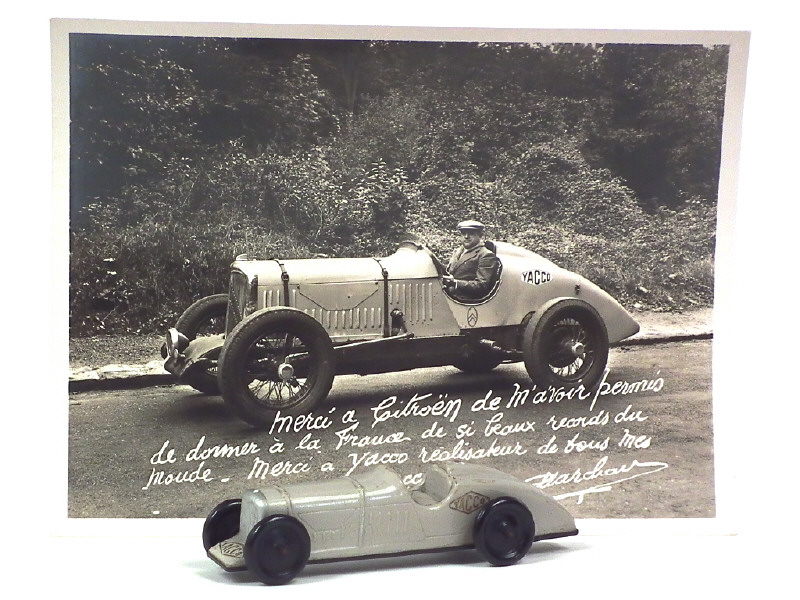 YACCO
merci a Citroën de m'avoir permis
de donner à la France de si beaux records du
Monde - Merci a Yacco réalisateur de tous mes
cc Marchand
YACCO
YACCO